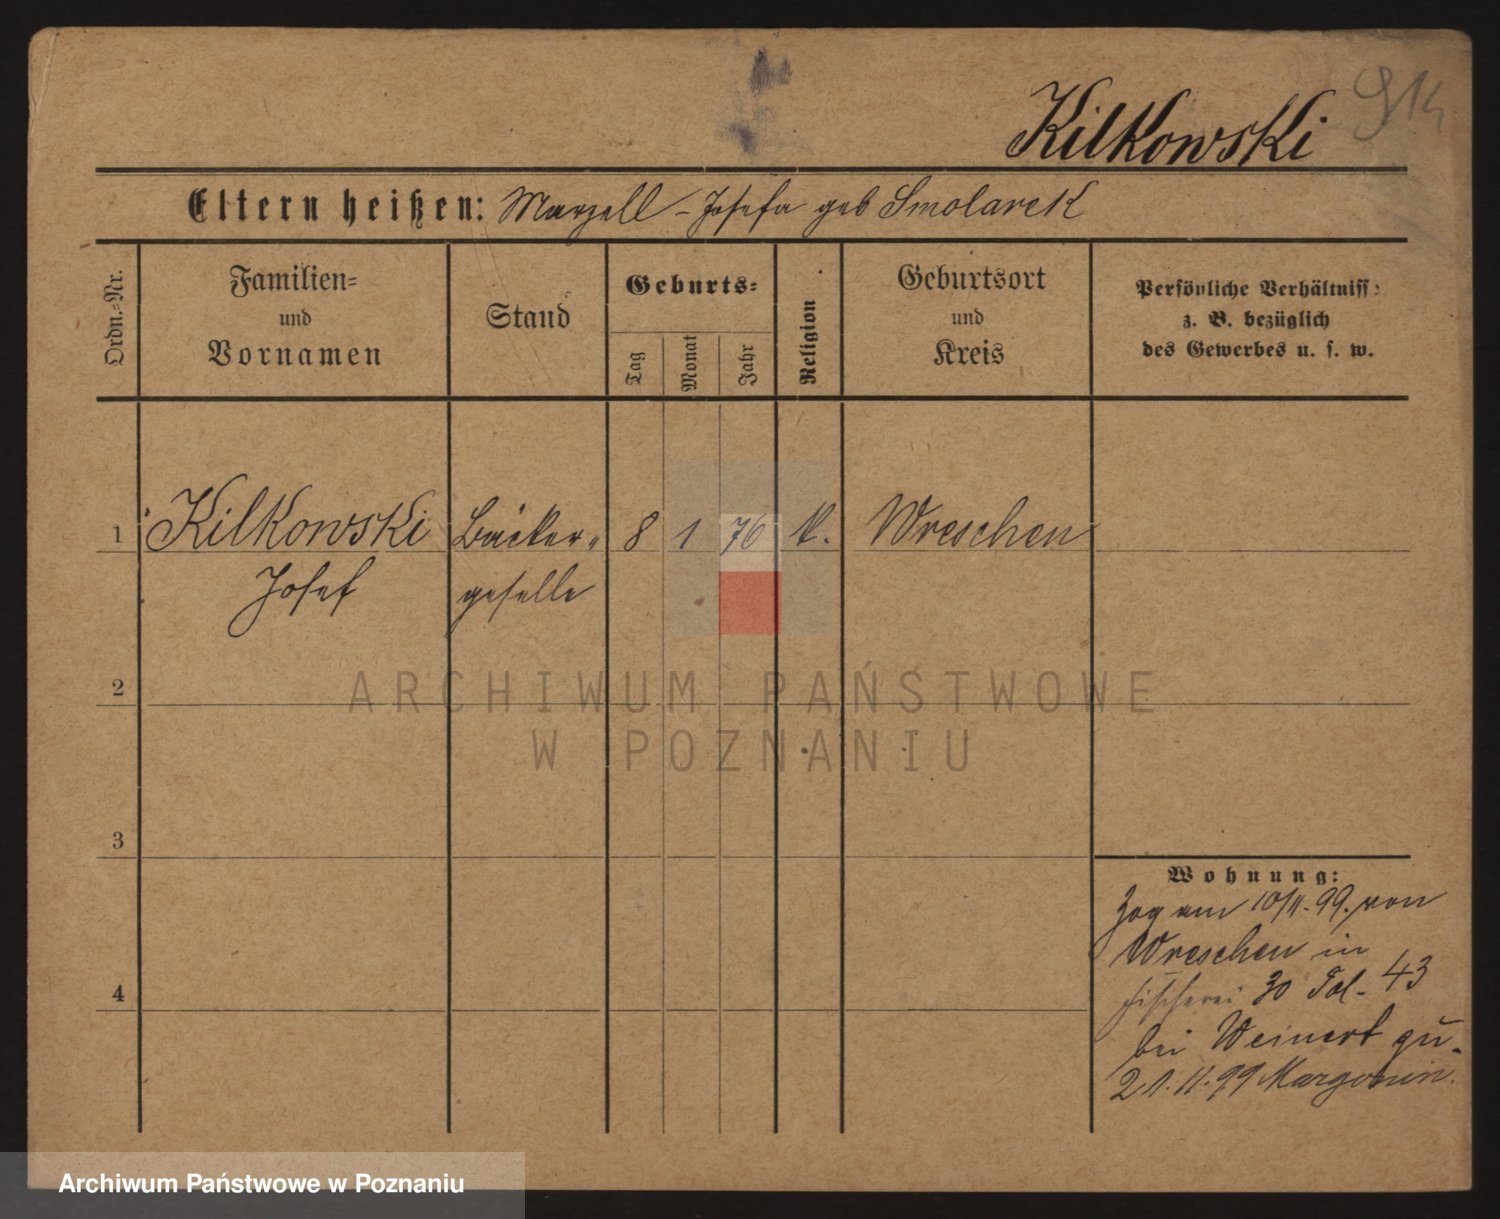 914
Kilkowski
Eltern heißen: Marzell - Josefa geb Smolarek
Ordn.-Nr.
Familien-
und
Vornamen
Stand
Geburts-
Tag
Monat
Jahr
Religion
Geburtsort
und
Kreis
Persönliche Verhältniss:
z. B. bezüglich
des Gewerbes u. s. w.
1 Kilkowski Bäcker- 8 1 76 k. Wreschen
Josef geselle
2
3
4
Wohnung:
Zog am 10/11.99. von
Wreschen in
Fischerei 30 Fol. 43
bei Weinert
21.11.99 Margonin.
ARCHIWUM PAŃSTWOWE
W POZNANIU
Archiwum Państwowe w Poznaniu